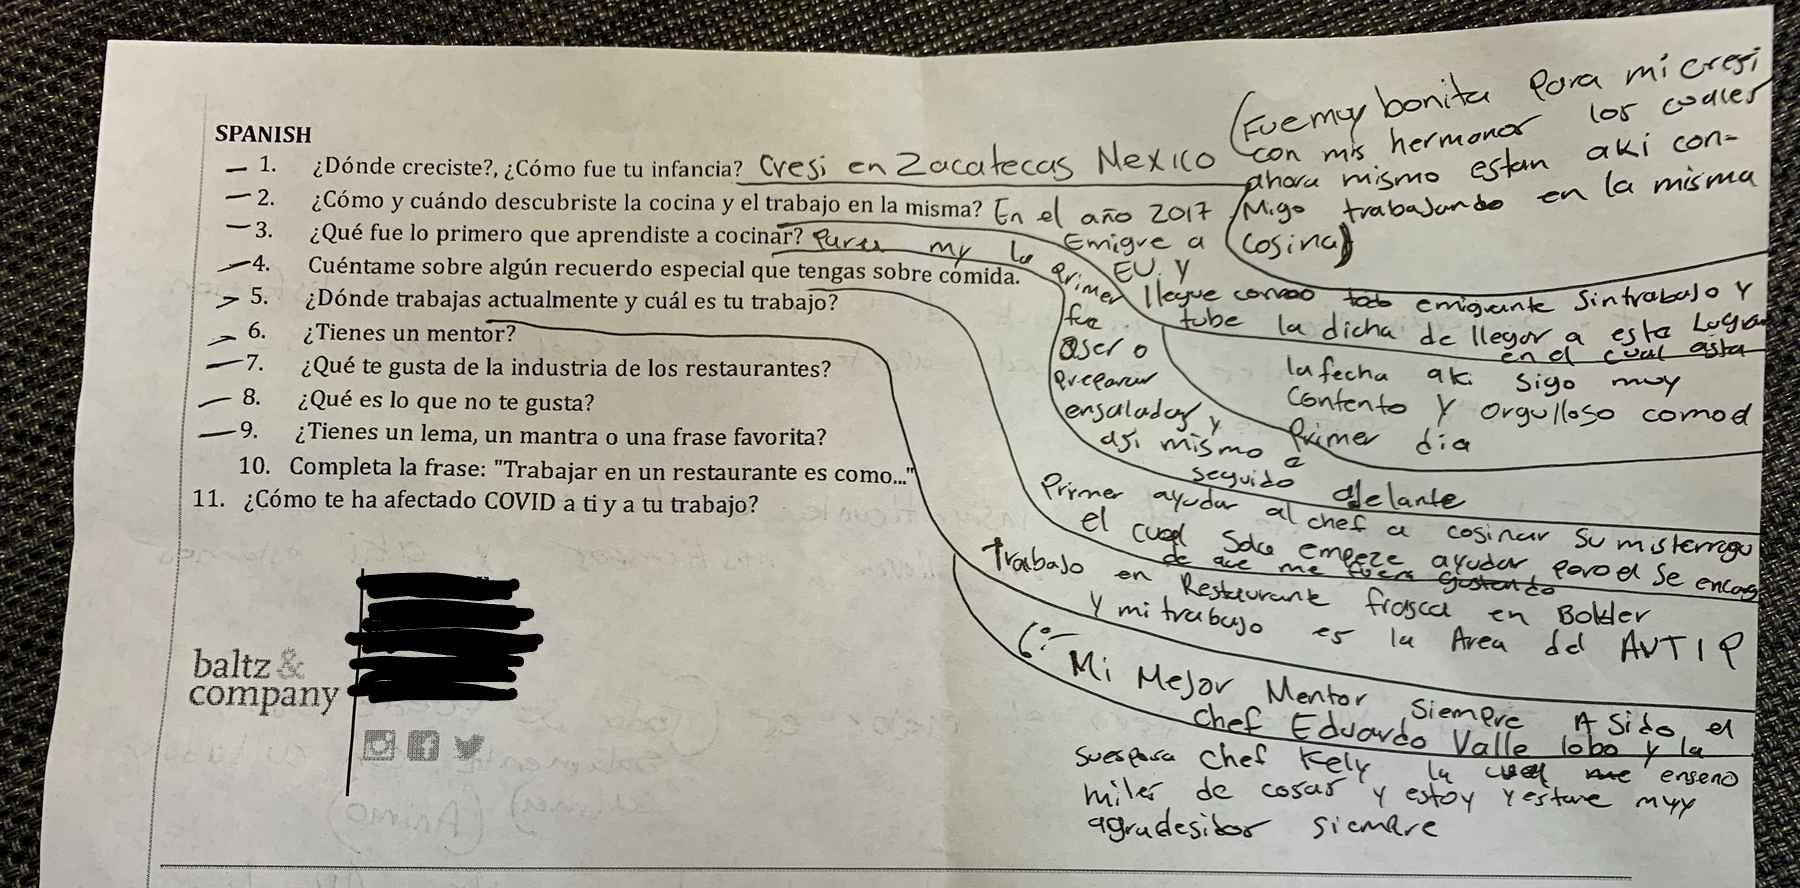 SPANISH
1. ¿Dónde creciste?, ¿Cómo fue tu infancia? Cresi en Zacatecas Mexico
(Fue muy bonita para mi cresi
con mis hermanos los cuales
ahora mismo estan aki con-
migo trabajando en la misma
cosina)
2. ¿Cómo y cuándo descubriste la cocina y el trabajo en la misma? En el año 2017
Emigre a
EU. y
llegue como emigrante sin trabajo y
tube la dicha de llegar a este Lugar
en el cual asta
la fecha aki sigo muy
contento y orgulloso como el
primer dia
3. ¿Qué fue lo primero que aprendiste a cocinar? Para my lo
primer
fue
aser o
preparar
ensaladas y
asi mismo e
seguido adelante
4. Cuéntame sobre algún recuerdo especial que tengas sobre comida.
Primer ayudar al chef a cosinar su misterregu
el cual solo empeze ayudar pero el se encargo
de que me fuera gustando
5. ¿Dónde trabajas actualmente y cuál es tu trabajo?
Trabajo en Restaurante frasca en Bolder
y mi trabajo es la Area del
6. ¿Tienes un mentor?
6:- Mi Mejor Mentor siempre A sido el
chef Eduardo Valle lobo y la
suesposa chef Kely la cual me enseno
miles de cosas y estoy y estare muyy
agradesidos siempre
7. ¿Qué te gusta de la industria de los restaurantes?
8. ¿Qué es lo que no te gusta?
9. ¿Tienes un lema, un mantra o una frase favorita?
10. Completa la frase: "Trabajar en un restaurante es como..."
11. ¿Cómo te ha afectado COVID a ti y a tu trabajo?
baltz &
company